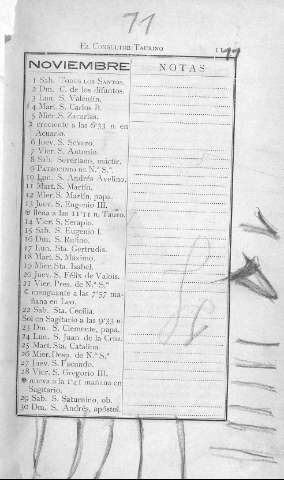 71
EL CONSULTOR TAURINO
NOVIEMBRE
NOTAS
1 Sab. TODOS LOS SANTOS.
2 Dm. C. de los difuntos.
3 Lun. S. Valentín.
4 Mart. S. Carlos B.
5 Mier. S. Zacarías.
creciente a las 6'33 n. en
Acuario.
6 Juev. S. Severo.
7 Vier. S. Antonio.
8 Sab. Severiano, mártir.
9 PATROCINIO DE N.ª S.ª
10 Lun. S. Andrés Avelino.
11 Mart. S. Martín.
12 Mier. S. Martín, papa.
13 Juev. S. Eugenio III.
llena a las 11'11 n. Tauro.
14 Vier. S. Serapio.
15 Sab. S. Eugenio I.
16 Dm. S. Rufino.
17 Lun. Sta. Gertrudis.
18 Mart. S. Máximo.
19 Mier. Sta. Isabel.
20 Juev. S. Félix de Valois.
21 Vier. Pres. de N.ª S.ª
menguante a las 7'57 ma-
ñana en Leo.
22 Sab. Sta. Cecilia.
Sol en Sagitario a las 9'33 n.
23 Dm. S. Clemente, papa.
24 Lun. S. Juan de la Cruz.
25 Mart. Sta. Catalina.
26 Mier. Desp. de N.ª S.ª
27 Juev. S. Facundo.
28 Vier. S. Gregorio III.
nueva a la 1'21 mañana en
Sagitario.
29 Sab. S. Saturnino, ob.
30 Dm. S. Andrés, apóstol.